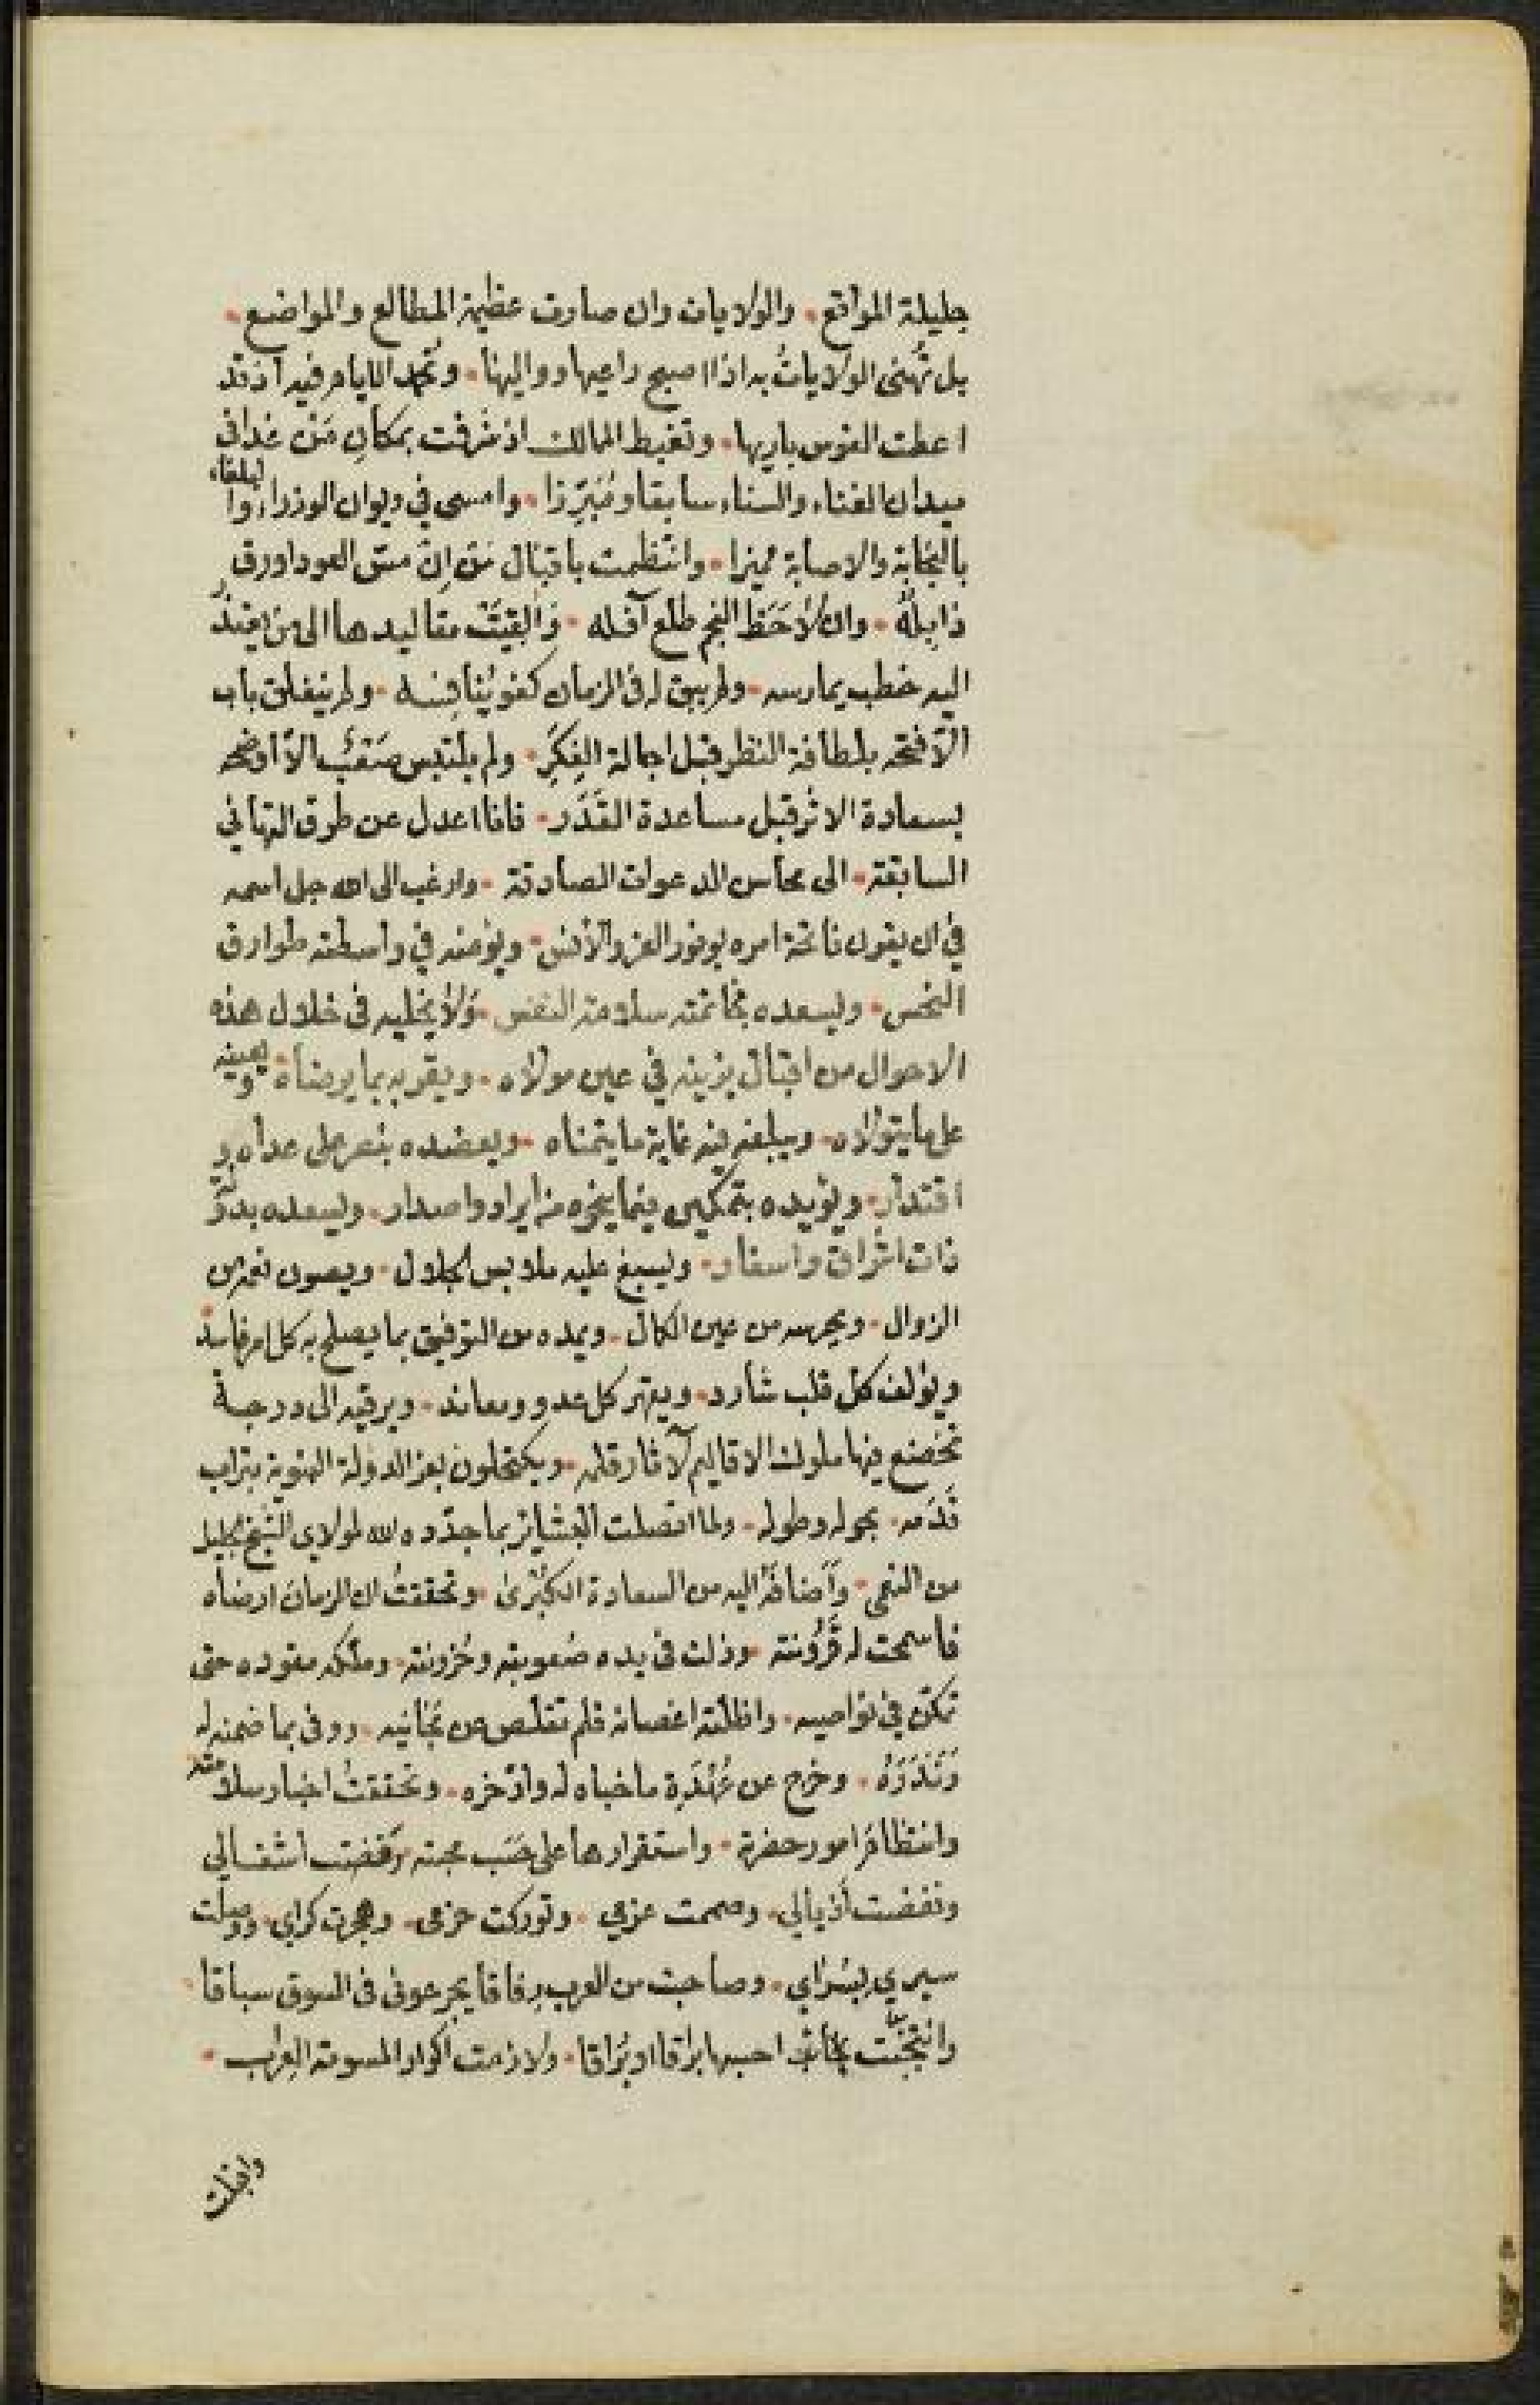 جليلة المواقع • والولايات وان صارت عظيمة المطالع والمواضع •
بل تُهنى الولاياتُ به اذا اصبح راعيها وواليها • وتُحمد الايام فيه اذ قد
اعطت القوس باريها • وتغبط الممالك اذ شرفت بمكانِ مَن غدا في
ميدان الغناء والسناء سابقا ومُبَرِّزا • وامسى في ديوان الوزراء والخلفاء
بالنجابة والاصابة مميزا • وانتظمت باقبال مَن اِن مسّ العود اورق
ذابِلُه • وان لاحَظ النجم طلع آفله • وأُلقيَتْ مقاليدها الى من لم يفذ
اليه خطب يمارسه • ولم يبق له في الزمان كفو يُنافِسه • ولم ينغلق باب
الّا فتحه بلطافة النظر قبل اجالة الفِكَرِ • ولم يلتبس صَعْبٌ الّا اوضحه
بسعادة الاثر قبل مساعدة القَدَر • فانا اعدل عن طرق التهاني
السابقة • الى محاسن الدعوات الصادقة • وارغب الى الله جل اسمه
في ان يقرن فاتحة امره بوفور العز والأنس • ويؤمنه في واسطته طوارق
النحس • ويسعده بخاتمته سلامة النفس • ولا يخليه في خلال هذه
الاحوال من اقبال يزينه في عين مولاه • ويقربه بما يرضاه • ويعينه
على ما يتولاه • ويبلغه فيه غاية ما يتمناه • ويعضده بنصر على عداه و
اقتدار • ويؤيده بتمكين فيما ينحوه من ايراد واصدار • ويسعده بدولة
ذات اشراق واسفار • ويسبغ عليه ملابس الجلال • ويصون نعمه من
الزوال • ويحرسه من عين الكمال • ويمده من التوفيق بما يصلح به كل امر فاسد
ويؤلف كل قلب شارد • ويقهر كل عدو ومعاند • ويرقيه الى درجة
تخضع فيها ملوك الاقاليم لآثار قلمه • ويكتحلون بعز الدولة بتراب
قَدَمه • بحوله وطوله • ولما اتصلت البشائر بما جدّده الله لمولاي الشيخ الجليل
من النعمى • وأضافَهُ اليه من السعادة الكُبْرى • وتحققتُ ان الزمان ارضاه
فاسمحت له قَرُونته • وذلت في يده صُعوبته وحُزونته • وملّكه مقوده حتى
تمكن في نواصيه • واظلته اغصانه فلم تقلص عن مَجانيه • ووفى بما ضمنه له
ونَذَرَهُ • وخرج عن عُهْدَةِ ما خباه له وادّخره • وتحققتُ اخبار سلامته
وانتظام امور حضرته • واستقرارها على حَسَب محبته رفضت اشغالي
ونفضت أذيالي • وصممت عزمي • وتوركت حزمى • وهجرت كراي • ووصلت
سيري بسُراي • وصاحبت من العرب رِفاقا يجرعوني في السوق سباقا •
وانتخبت نجائب احسبها براقا او بُراقا • ولازمت اكوار المسومة العِراب •